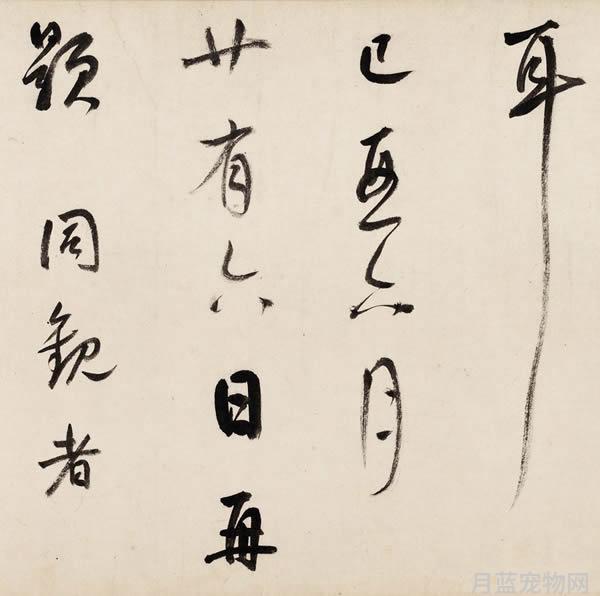 耳
己亥六月
廿有六日再
题 同观者
月蓝宠物网